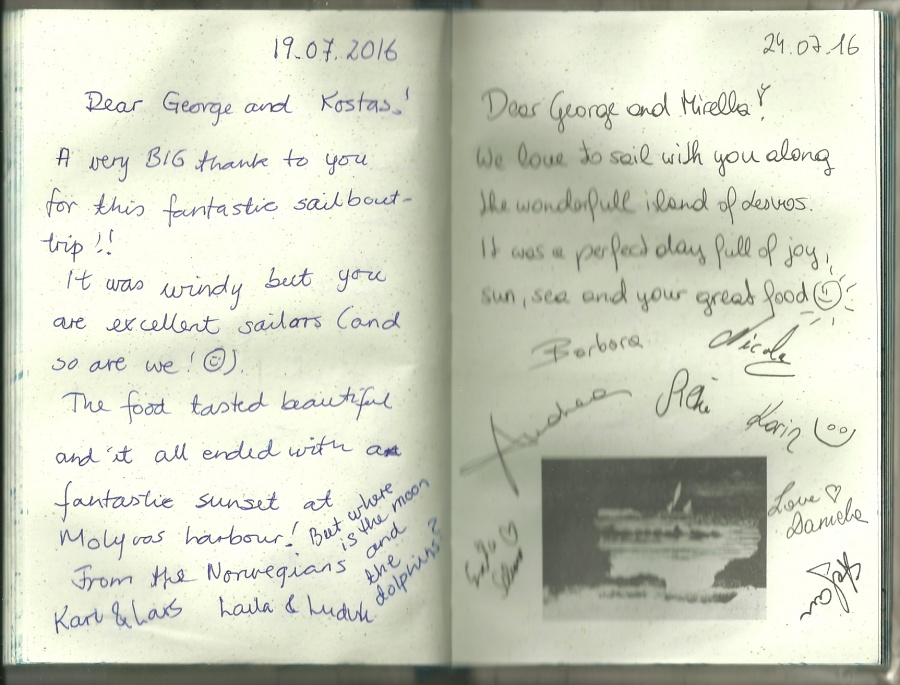 19.07.2016
Dear George and Kostas!
A very BIG thank to you
for this fantastic sailbout-
trip!!
It was windy but you
are excellent sailors (and
so are we! ☺).
The food tasted beautiful
and it all ended with a
fantastic sunset at
Molyvos harbour! But where
is the moon
and
the
dolphins?
From the Norwegians
Kari & Lars Laila & Ludvik
24.07.16
Dear George and Mirella!
We love to sail with you along
the wonderfull island of Lesvos.
It was a perfect day full of joy,
sun, sea and your great food ☺
Barbara
Nicola
Andrea
Karin ☺
Love ♡
Daniela
Stefan